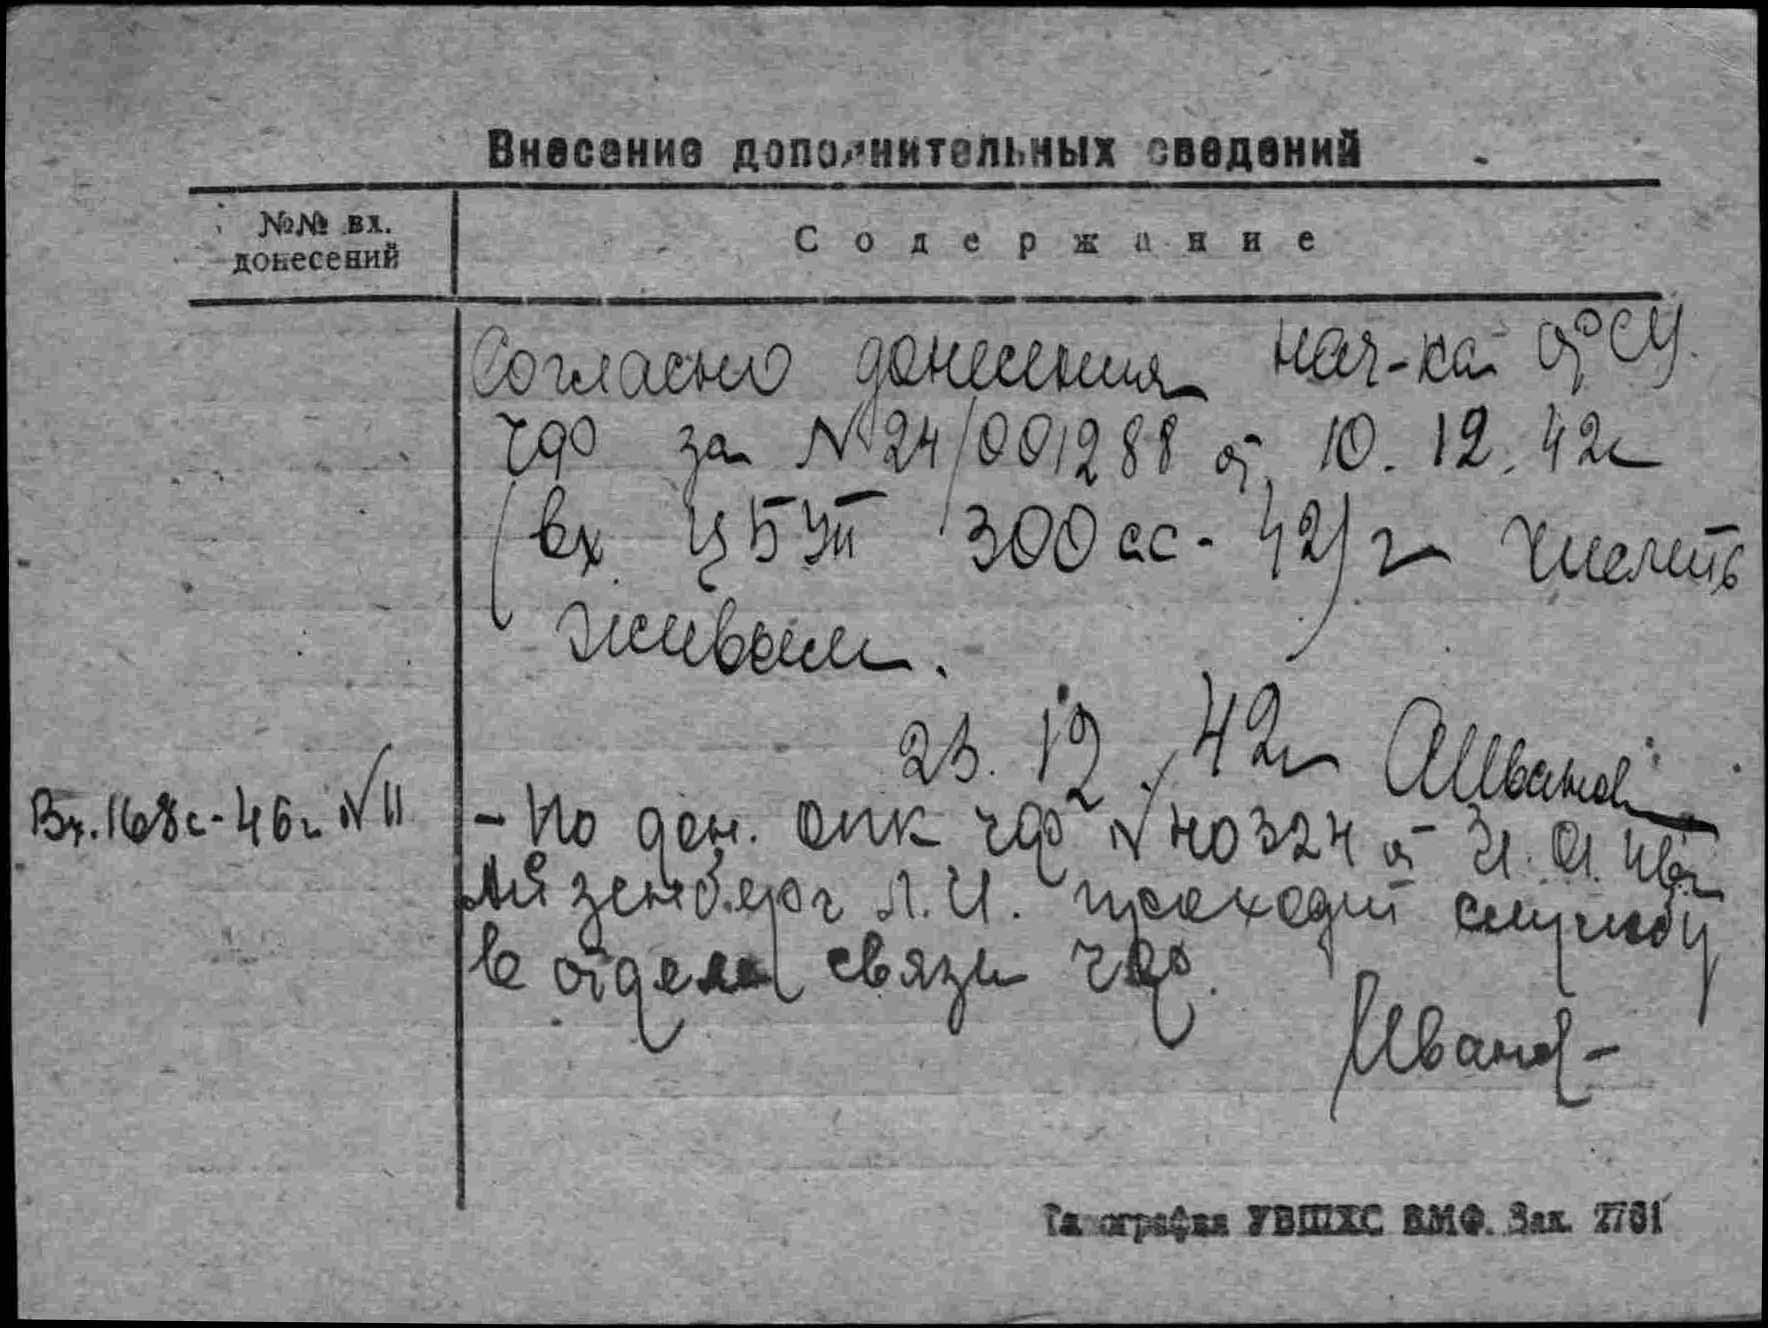 Внесение дополнительных сведений
№№ вх.
донесений
Содержание
Согласно донесения нач-ка ОРСУ
ЧФ за №24/001288 от 10.12.42г
(вх. ЦБУП 300сс-42)г числить
живым.
23.12.42г АИванов
Вх.168с-46г №11
- По дон. ОПК ЧФ №40324 от 31.01.46г
Айзенберг Л.И. проходит службу
в отделе связи ЧФ.
Иванов-
Типография УВШХС ВМФ. Зак. 2761